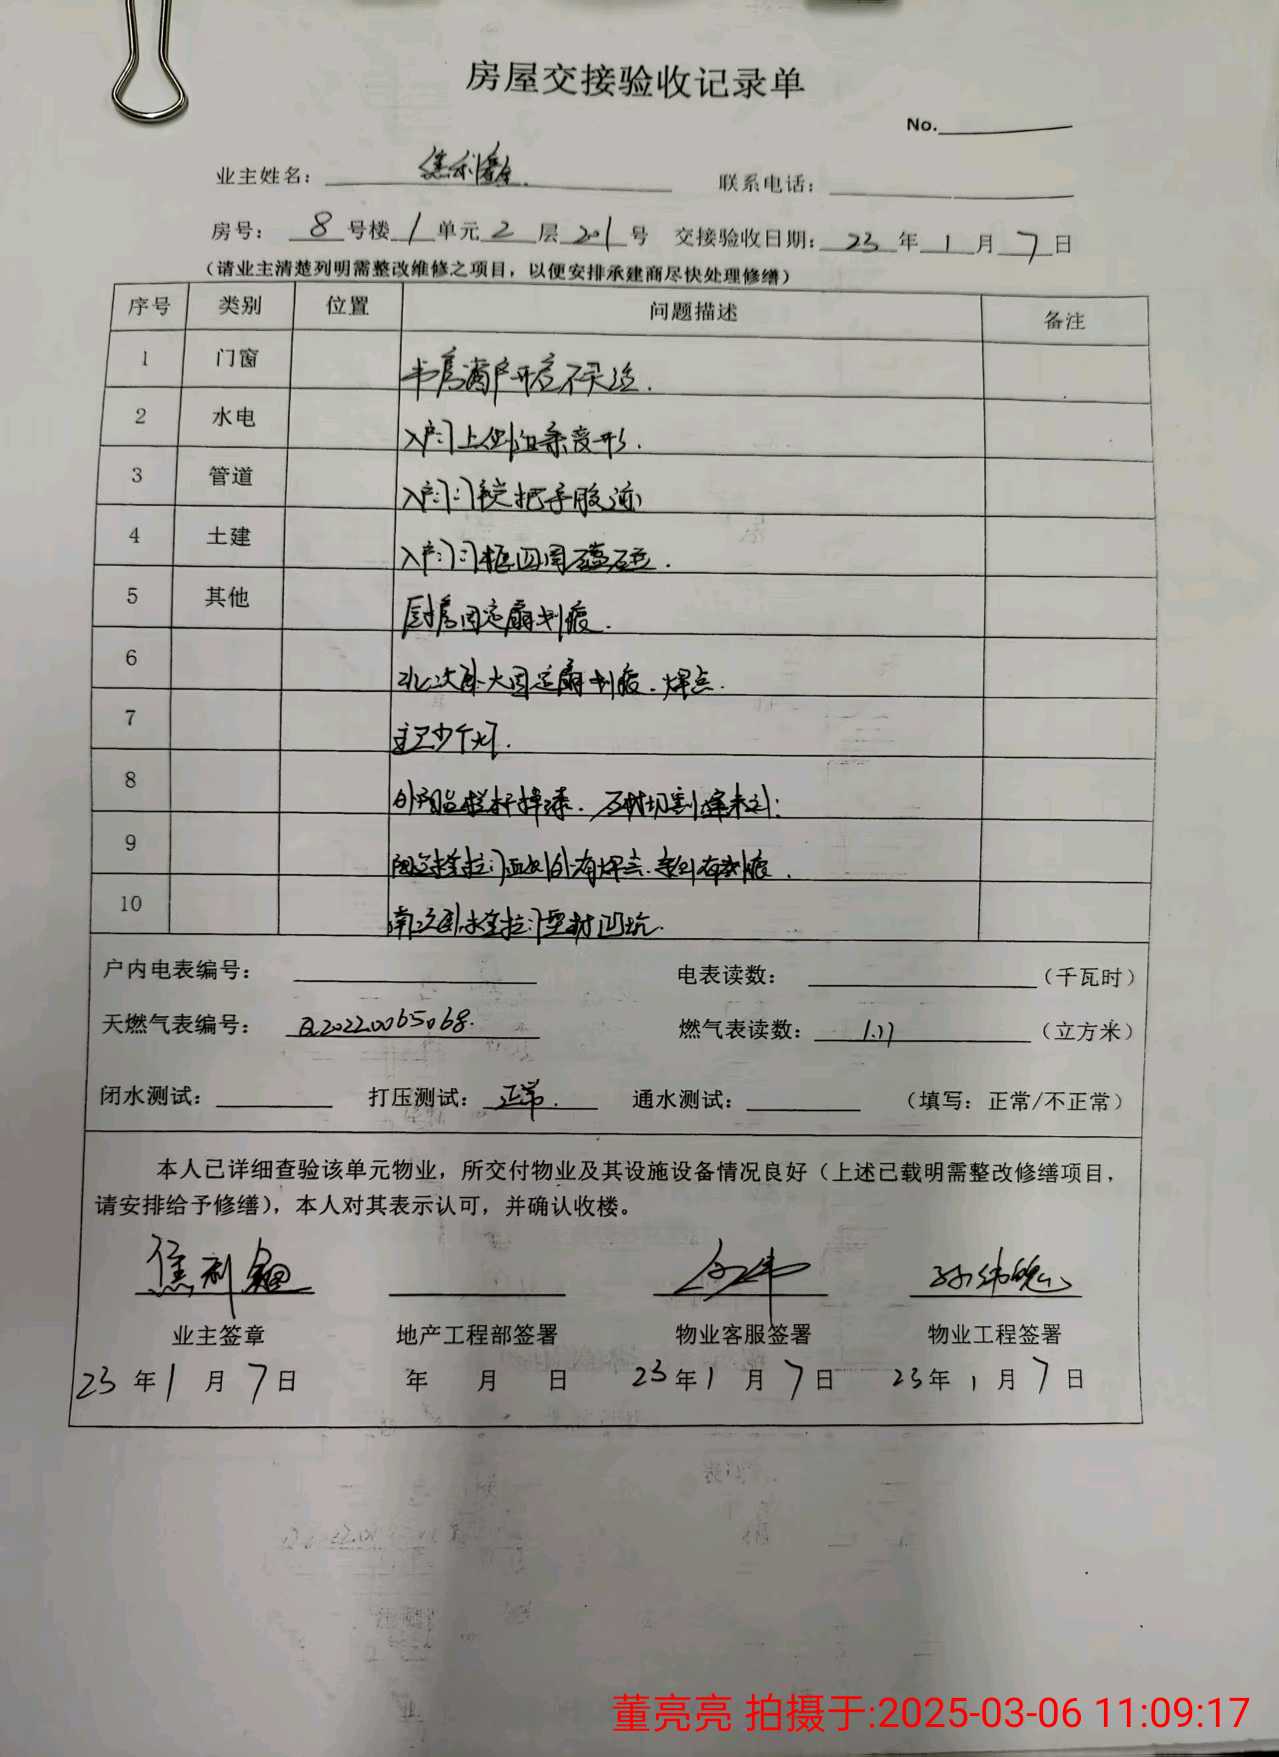 房屋交接验收记录单
No.
业主姓名: 焦利 联系电话:
房号: 8 号楼 1 单元 2 层 201 号 交接验收日期: 23 年 1 月 7 日
(请业主清楚列明需整改维修之项目，以便安排承建商尽快处理修缮)
序号 类别 位置 问题描述 备注
1 门窗 书房窗户开启不灵活.
2 水电 入户门上侧 条变形.
3 管道 入户门门锁把手胶迹
4 土建 入户门门框四周磕碰.
5 其他 厨房固定扇划痕.
6 北次卧大固定扇划痕.焊点.
7 主卫少个灯.
8 外阳台栏杆掉漆.
9 有焊点. 有划痕.
10 南次卧 拉门型材凹坑.
户内电表编号: 电表读数: (千瓦时)
天燃气表编号: 燃气表读数: 1.77 (立方米)
闭水测试: 打压测试: 正常. 通水测试: (填写: 正常/不正常)
本人已详细查验该单元物业，所交付物业及其设施设备情况良好（上述已载明需整改修缮项目，
请安排给予修缮），本人对其表示认可，并确认收楼。
焦利
业主签章 地产工程部签署 物业客服签署 物业工程签署
23 年 1 月 7 日 年 月 日 23 年 1 月 7 日 23 年 1 月 7 日
董亮亮 拍摄于:2025-03-06 11:09:17